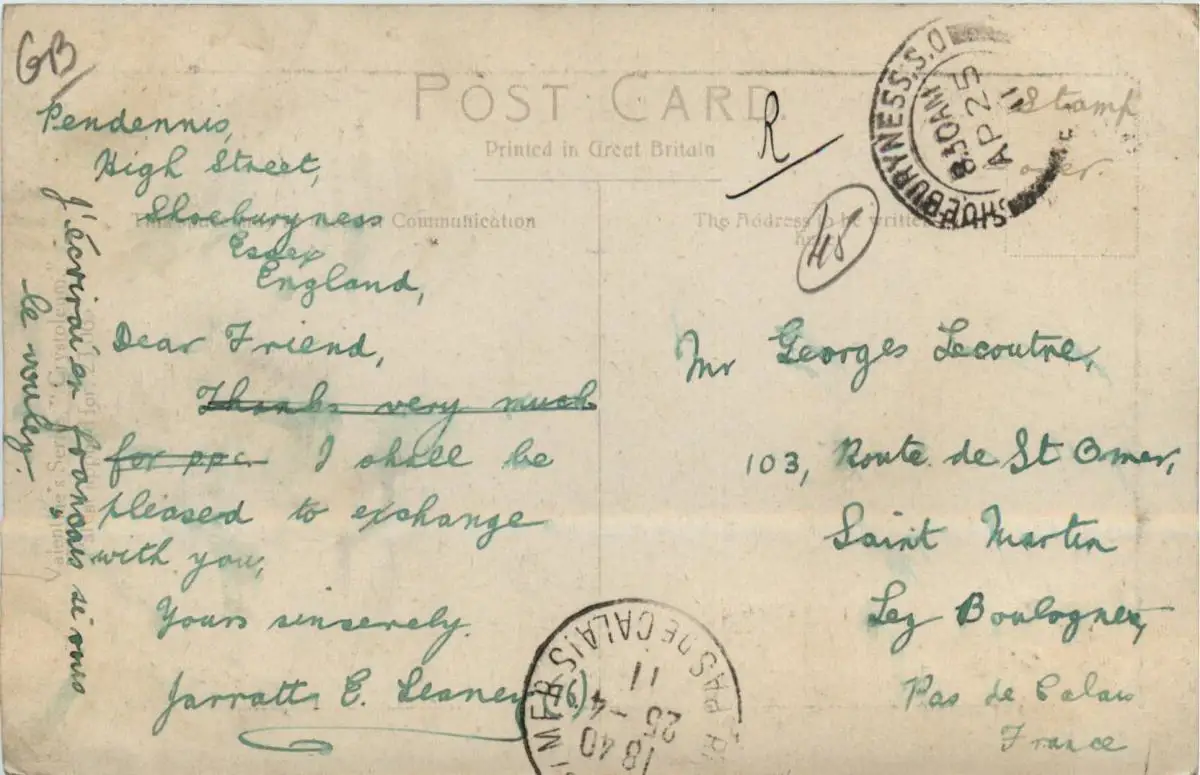 GB
POST CARD.
Printed in Great Britain
R
SHOEBURYNESS.S.O
8.30AM
AP 25
11
Stamp
over.
48
Communication
The Address to be written
Pendennis,
High Street,
Shoeburyness
Essex
England,
Dear Friend,
Thanks very much
for ppc. I shall be
pleased to exchange
with you,
Yours sincerely.
Jarratt E. Leaney
J'écrirai en français si vous
le voulez.
Mr Georges Lecoutre,
103, Route de St Omer,
Saint Martin
Lez Boulogne,
Pas de Calais
France
PAS DE CALAIS
18 40
25 - 4
11